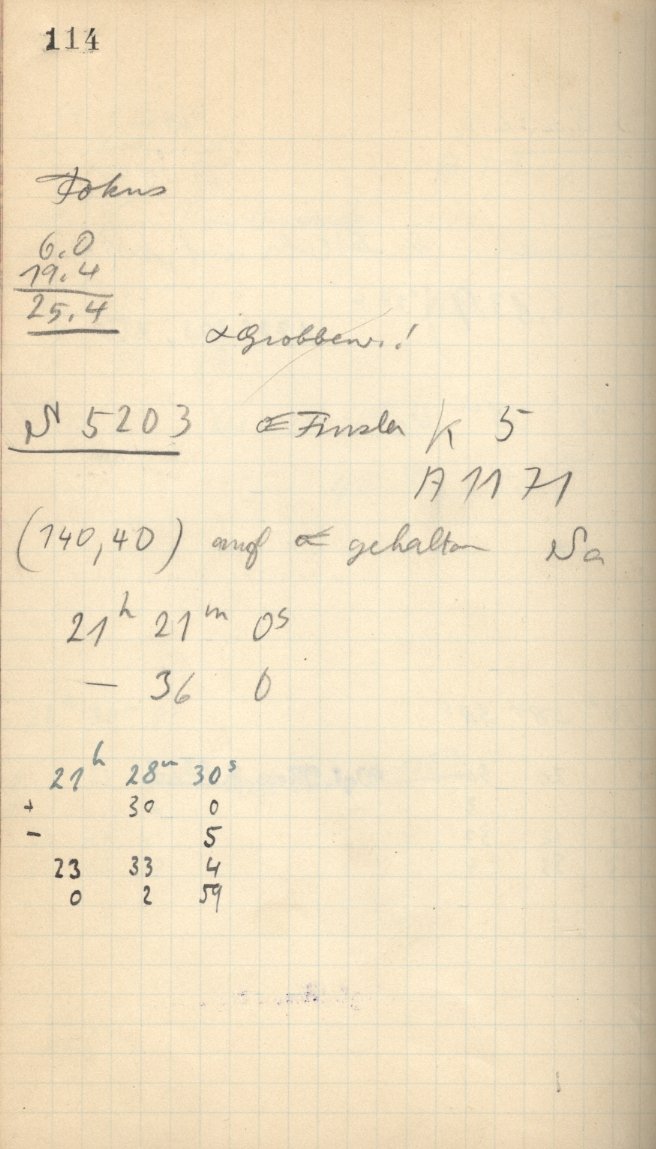 114
Fokus
6.0
19.4
25.4
∝ Grobbew.!
N 5203 ☄ Finsler K 5
A 1171
(140,40) auf ☄ gehalten Na
21h 21m 0s
– 36 0
21h 28m 30s
+ 30 0
– 5
23 33 4
0 2 59